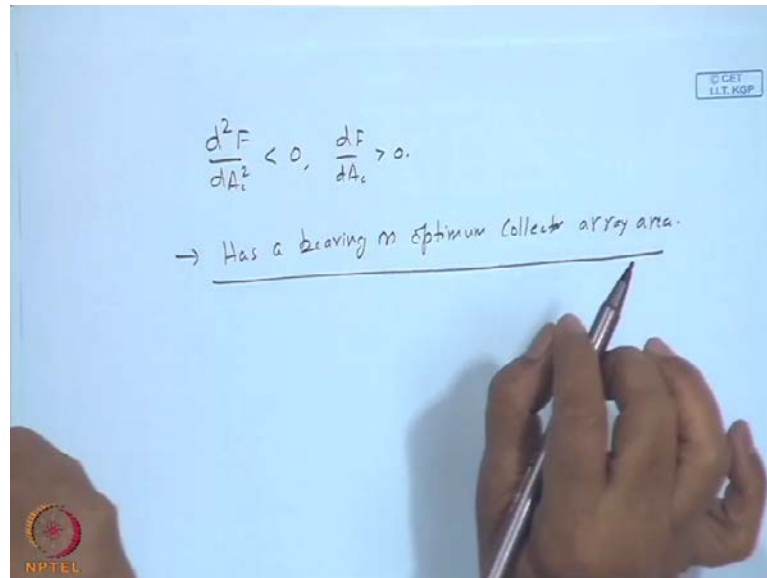 © CET
I.I.T. KGP
d²F/dA_c² < 0, dF/dA_c > 0.
→ Has a bearing on optimum Collector array area.
NPTEL